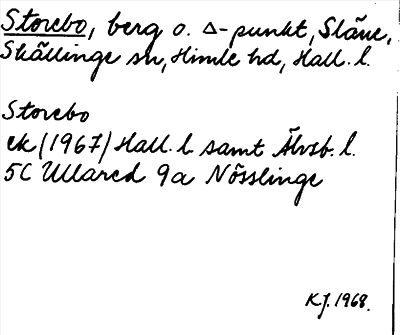 Storebo, berg o. △-punkt, Släne,
Skällinge sn, Himle hd, Hall. l.
Storebo
ek (1967) Hall. l. samt Älvsb. l.
5C Ullared 9a Nösslinge
K.J. 1968.